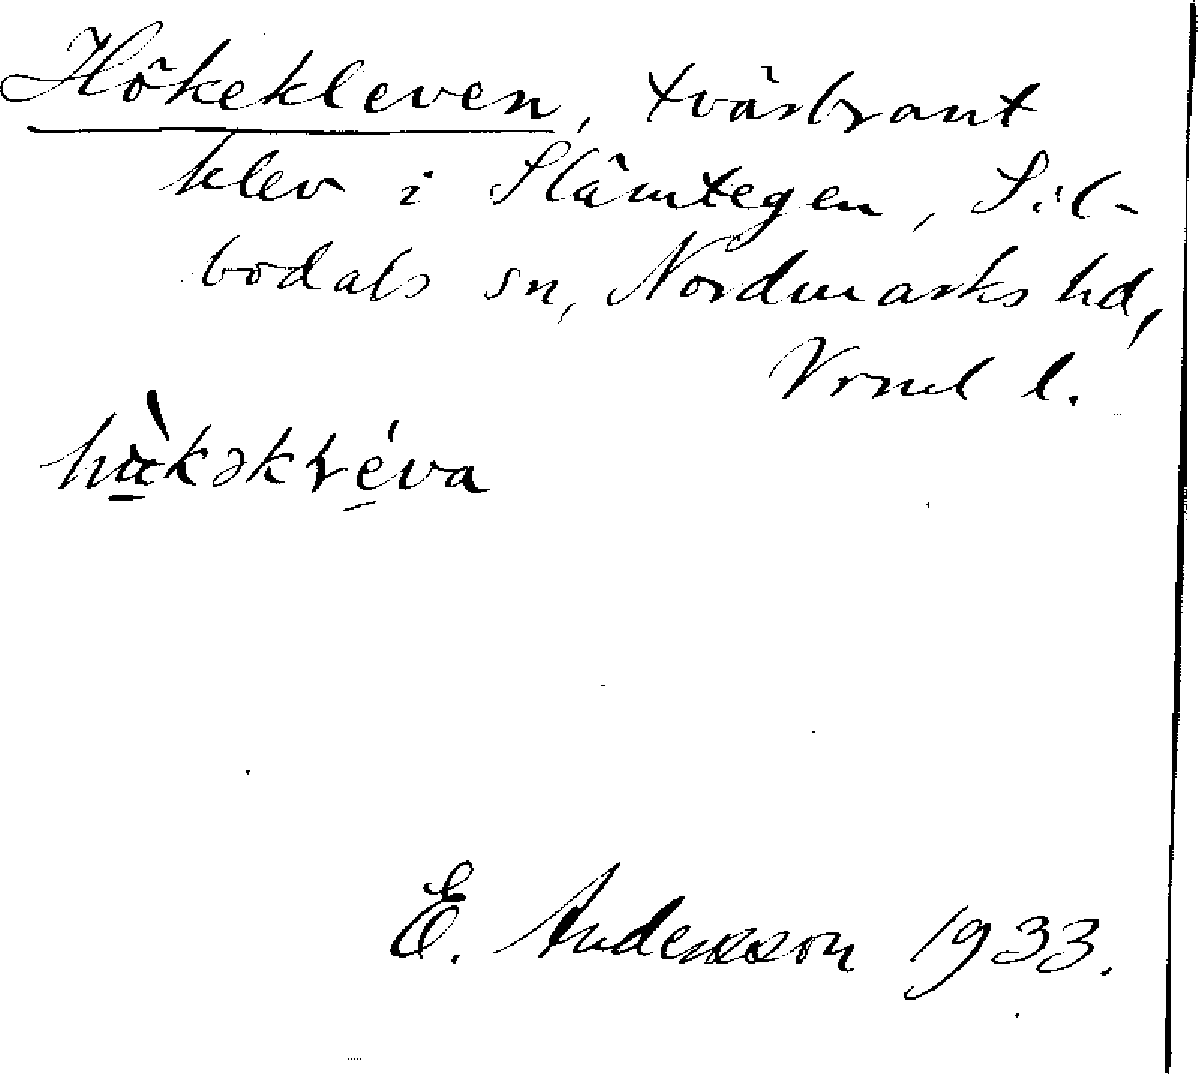 Hökekleven, tvärbrant
klev i Slämtegen, Sil-
bodals sn, Nordmarks hd,
Vrml l.
E. Andersson 1933.